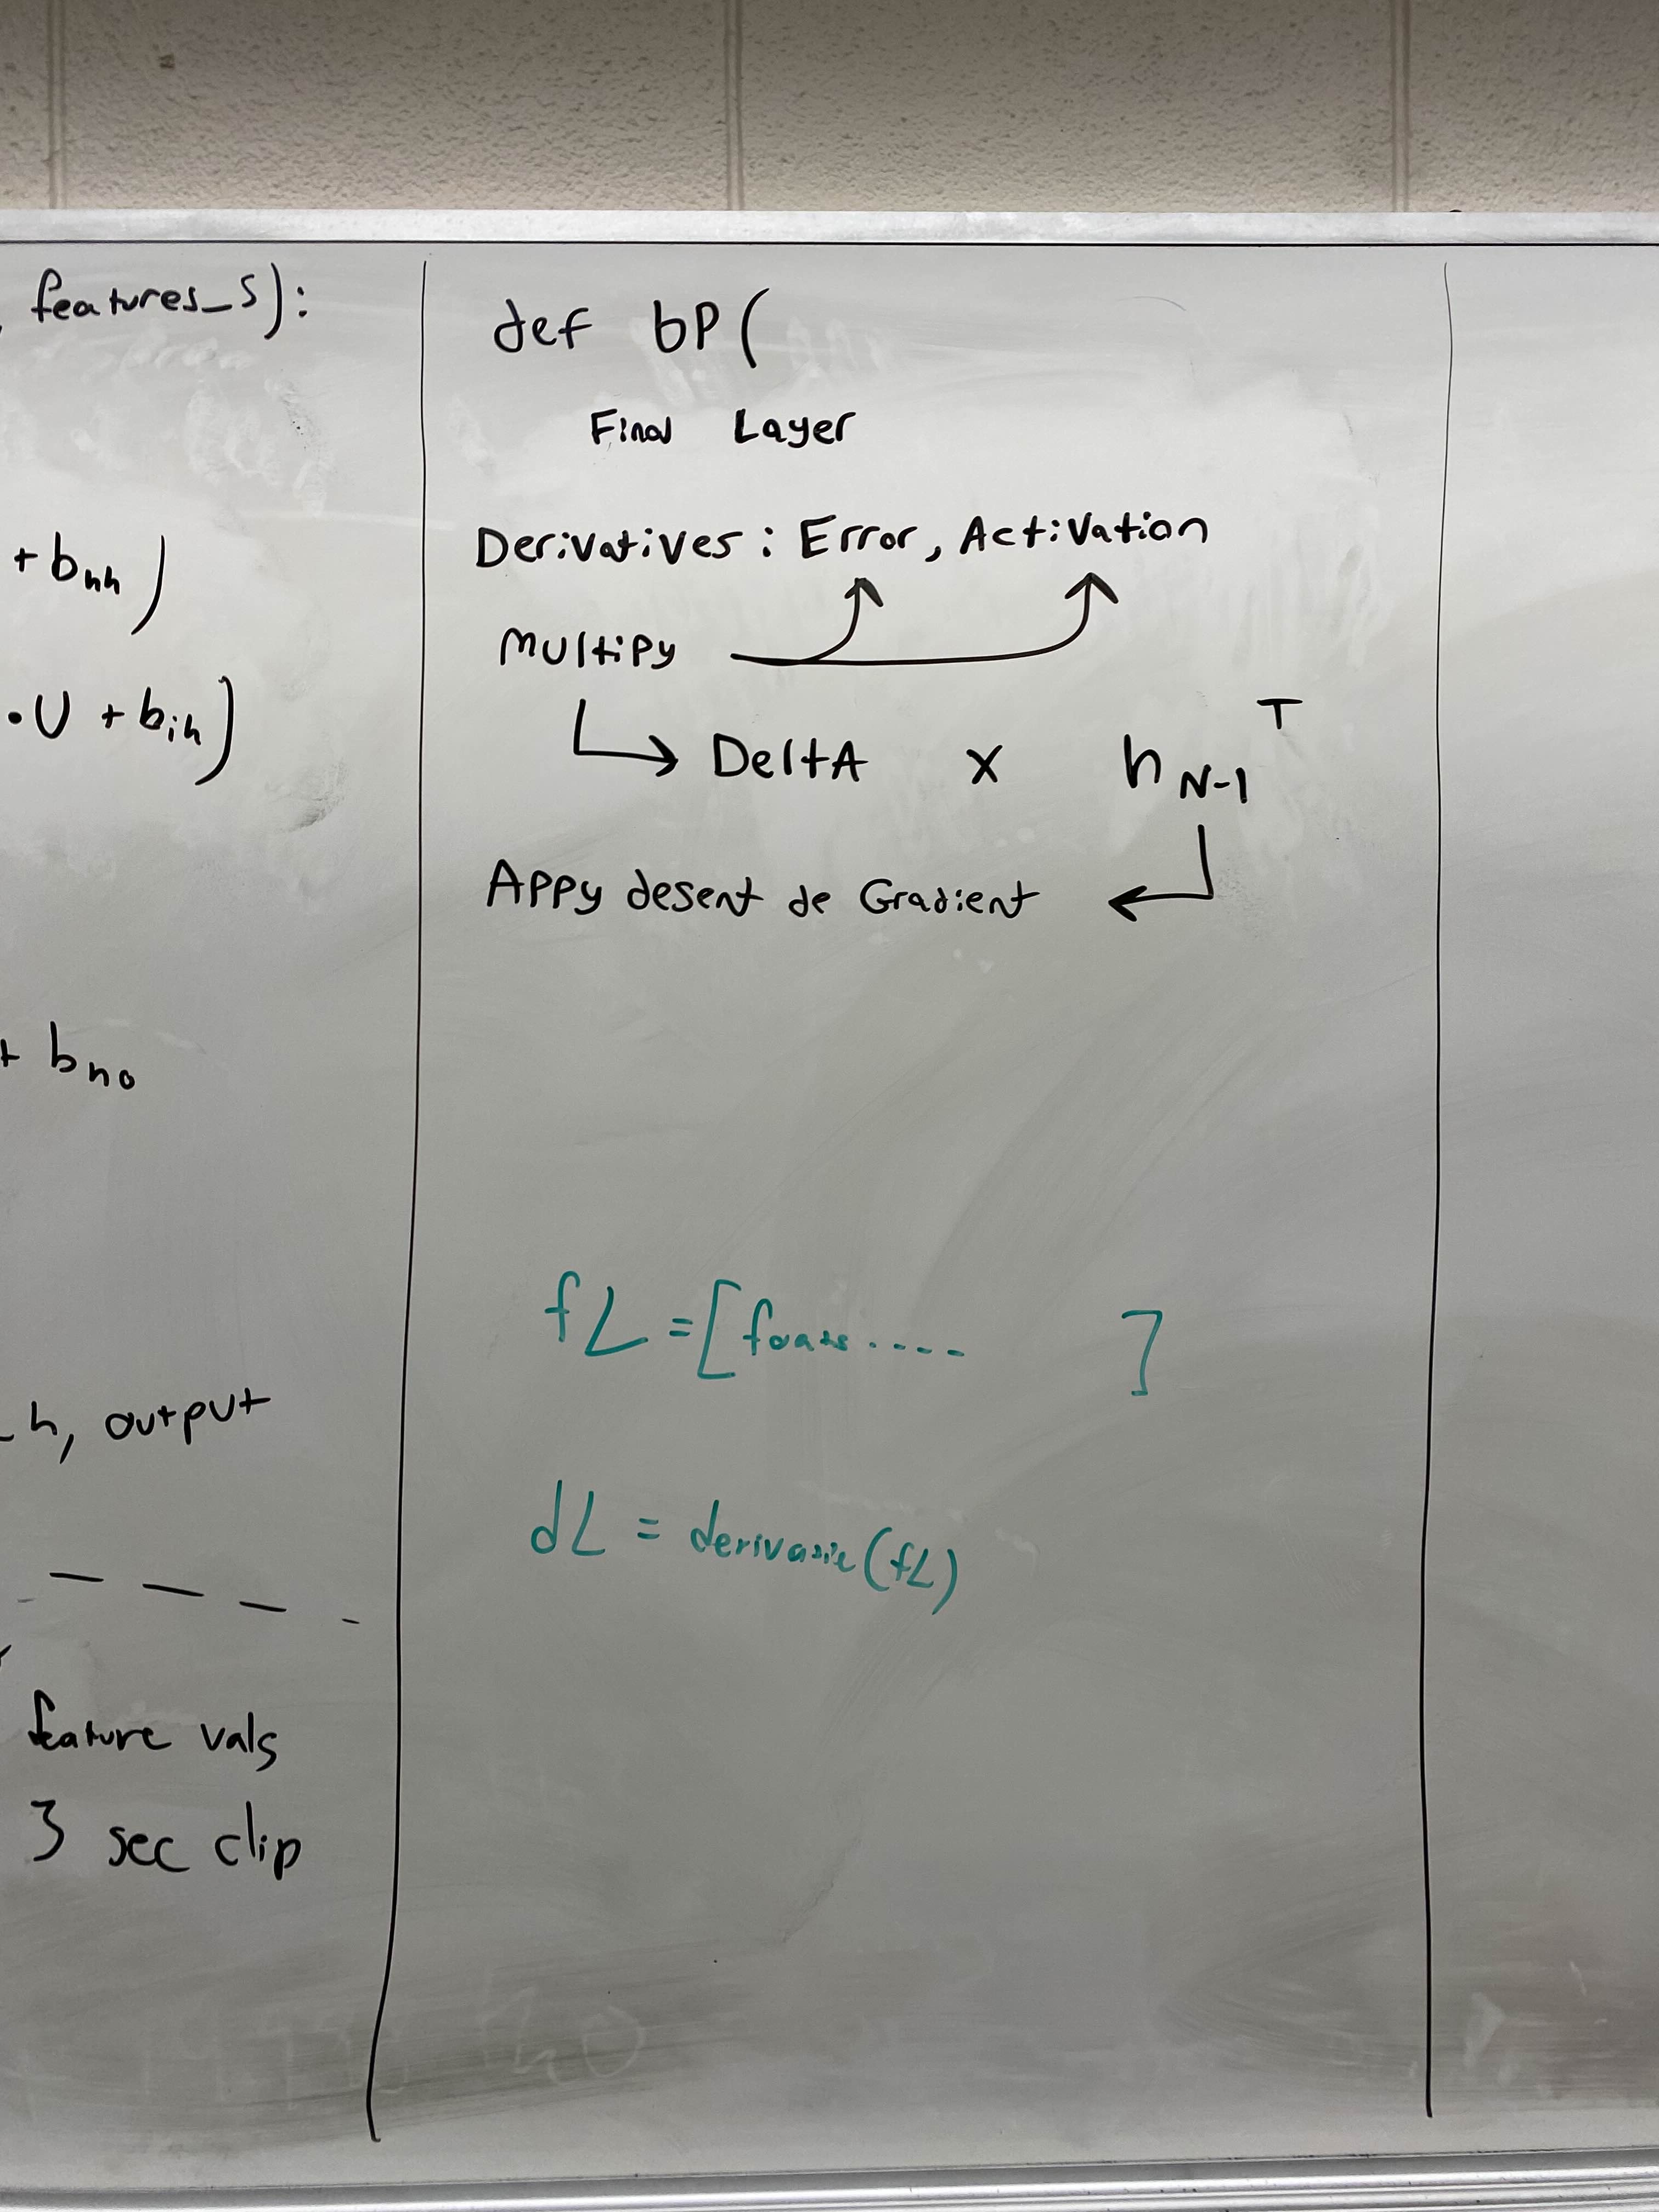 features_s):
+ b_hh)
• U + b_ih)
+ b_ho
_h, output
feature vals
3 sec clip
def bP(
Final Layer
Derivatives : Error, Activation
Multipy
DeltA x h_N-1^T
Appy desent de Gradient
fL = [ ]
dL = derivative(fL)